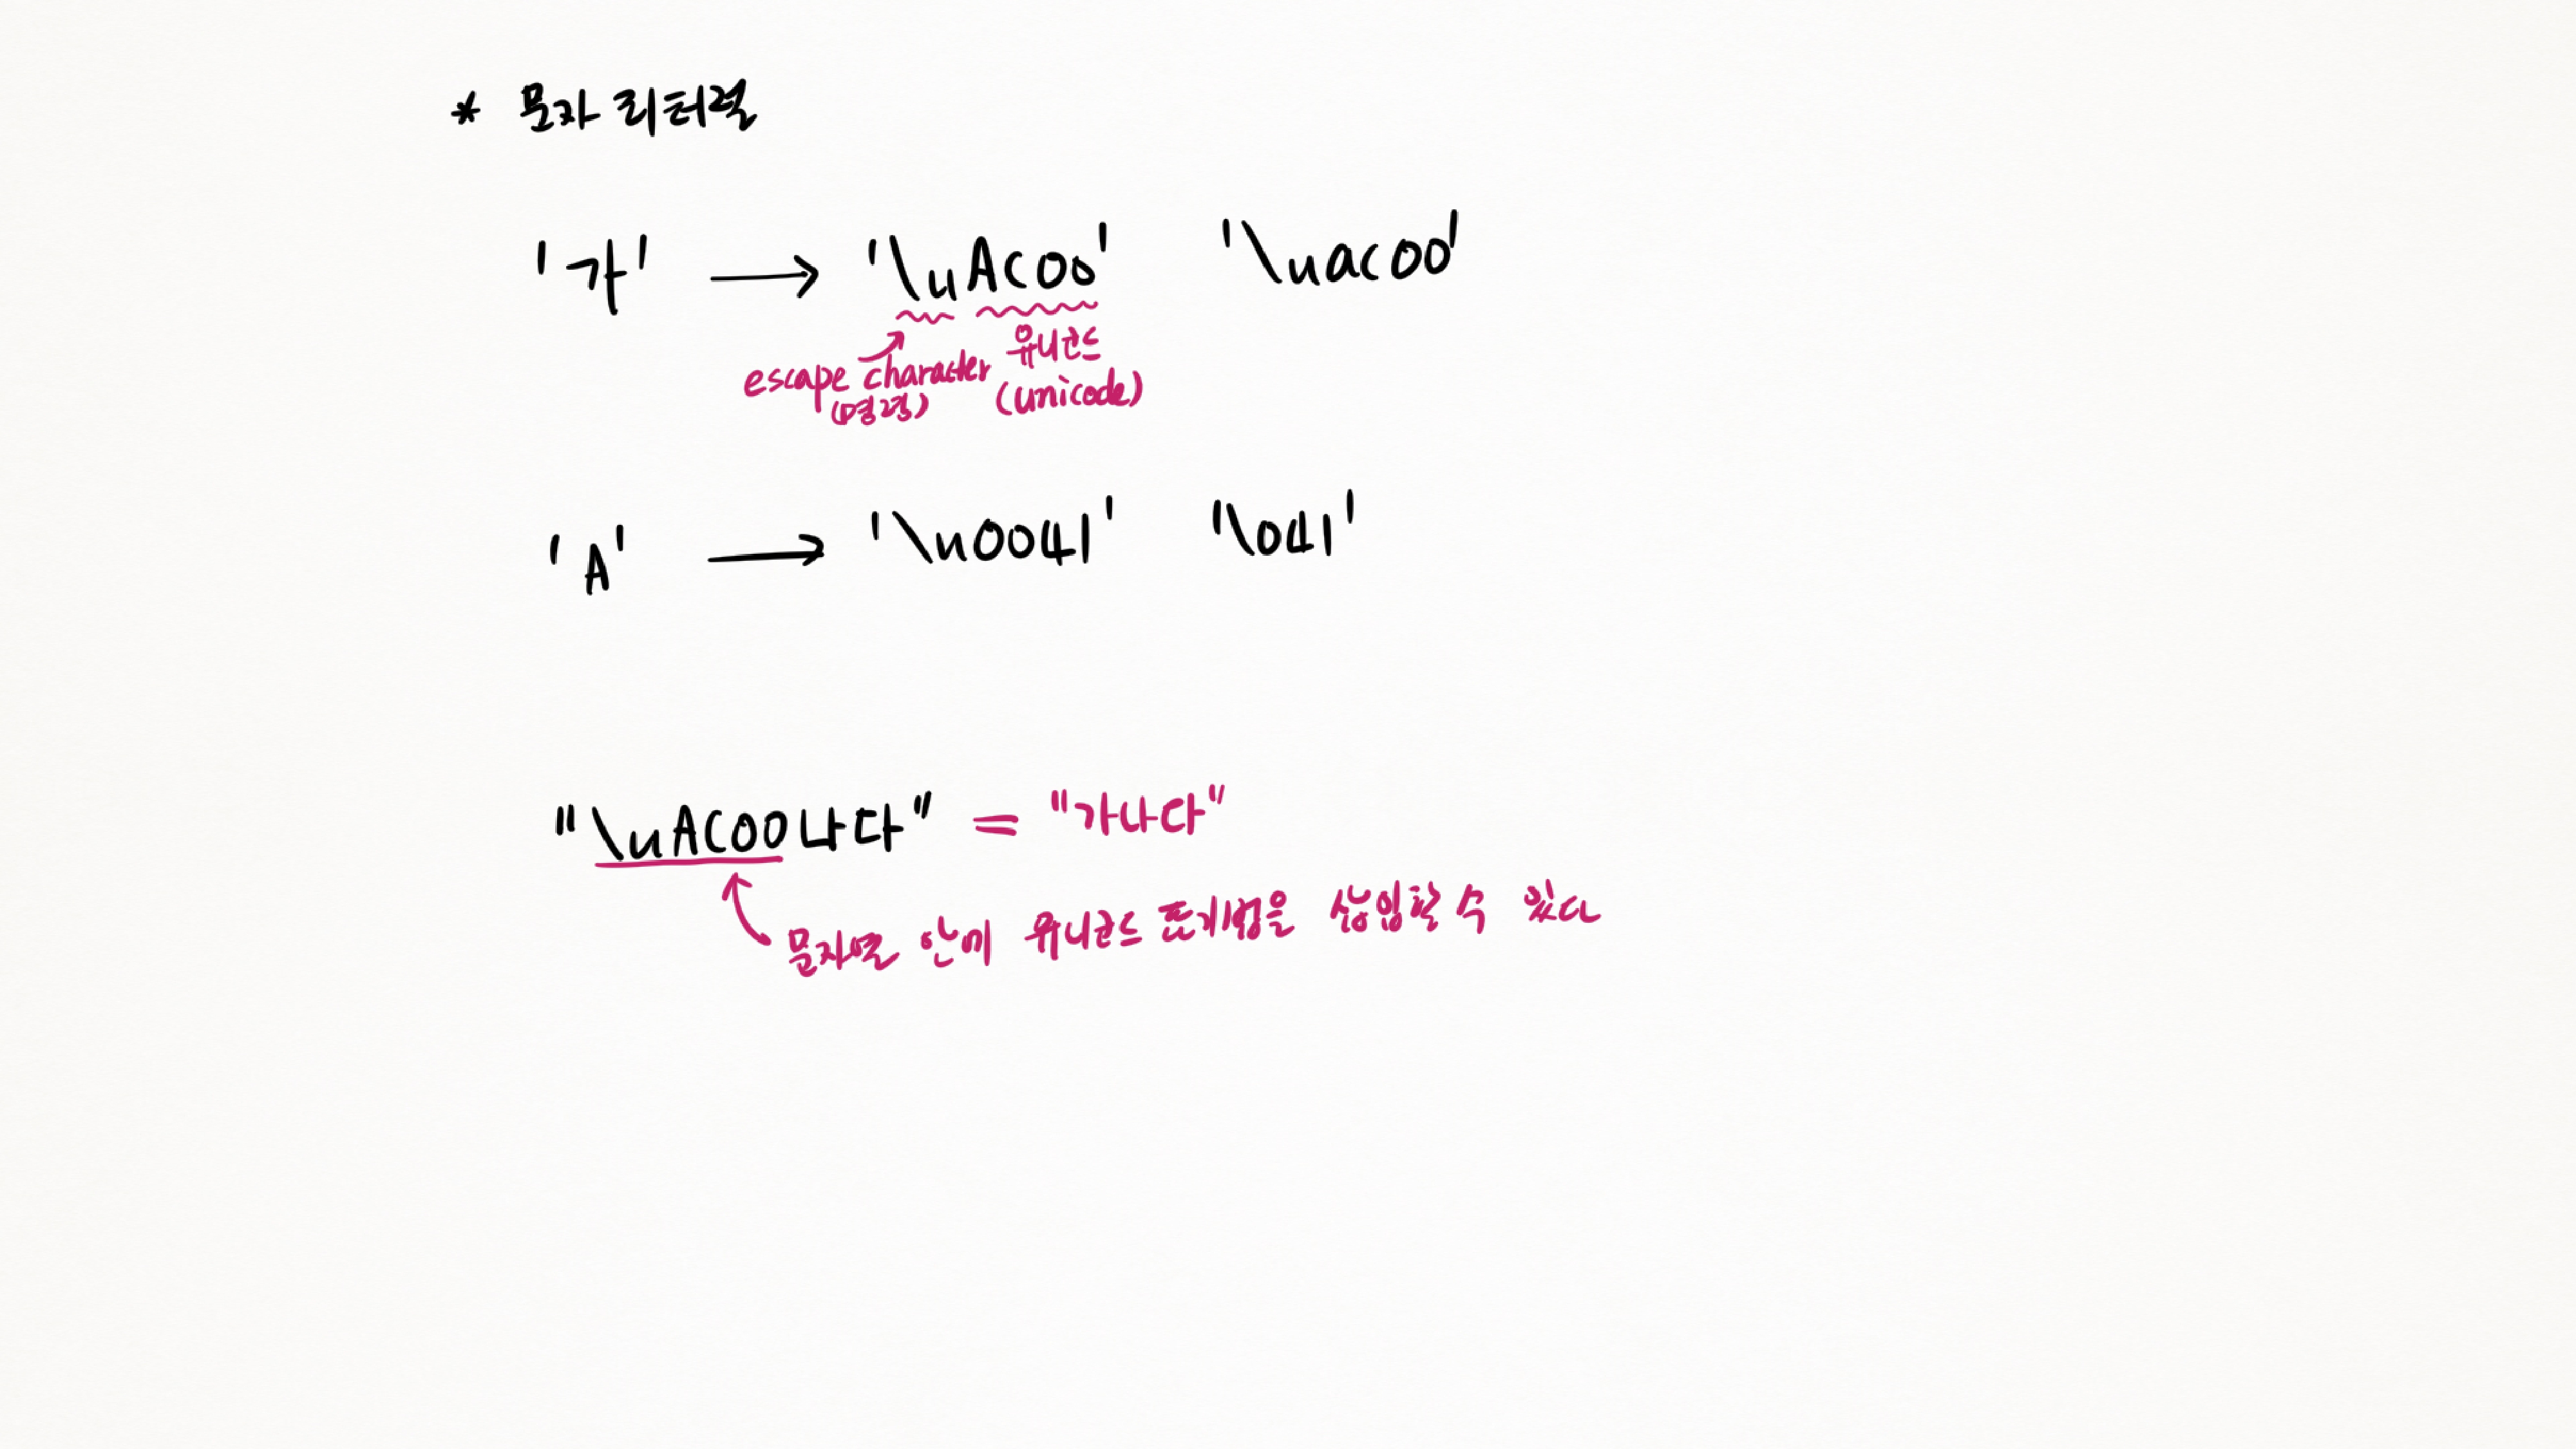 * 문자 리터럴
'가' → '\uAC00' '\uac00'
escape character 유니코드
(명령) (unicode)
'A' → '\u0041' '\041'
"\uAC00나다" = "가나다"
문자열 안에 유니코드 표기법을 삽입할 수 있다